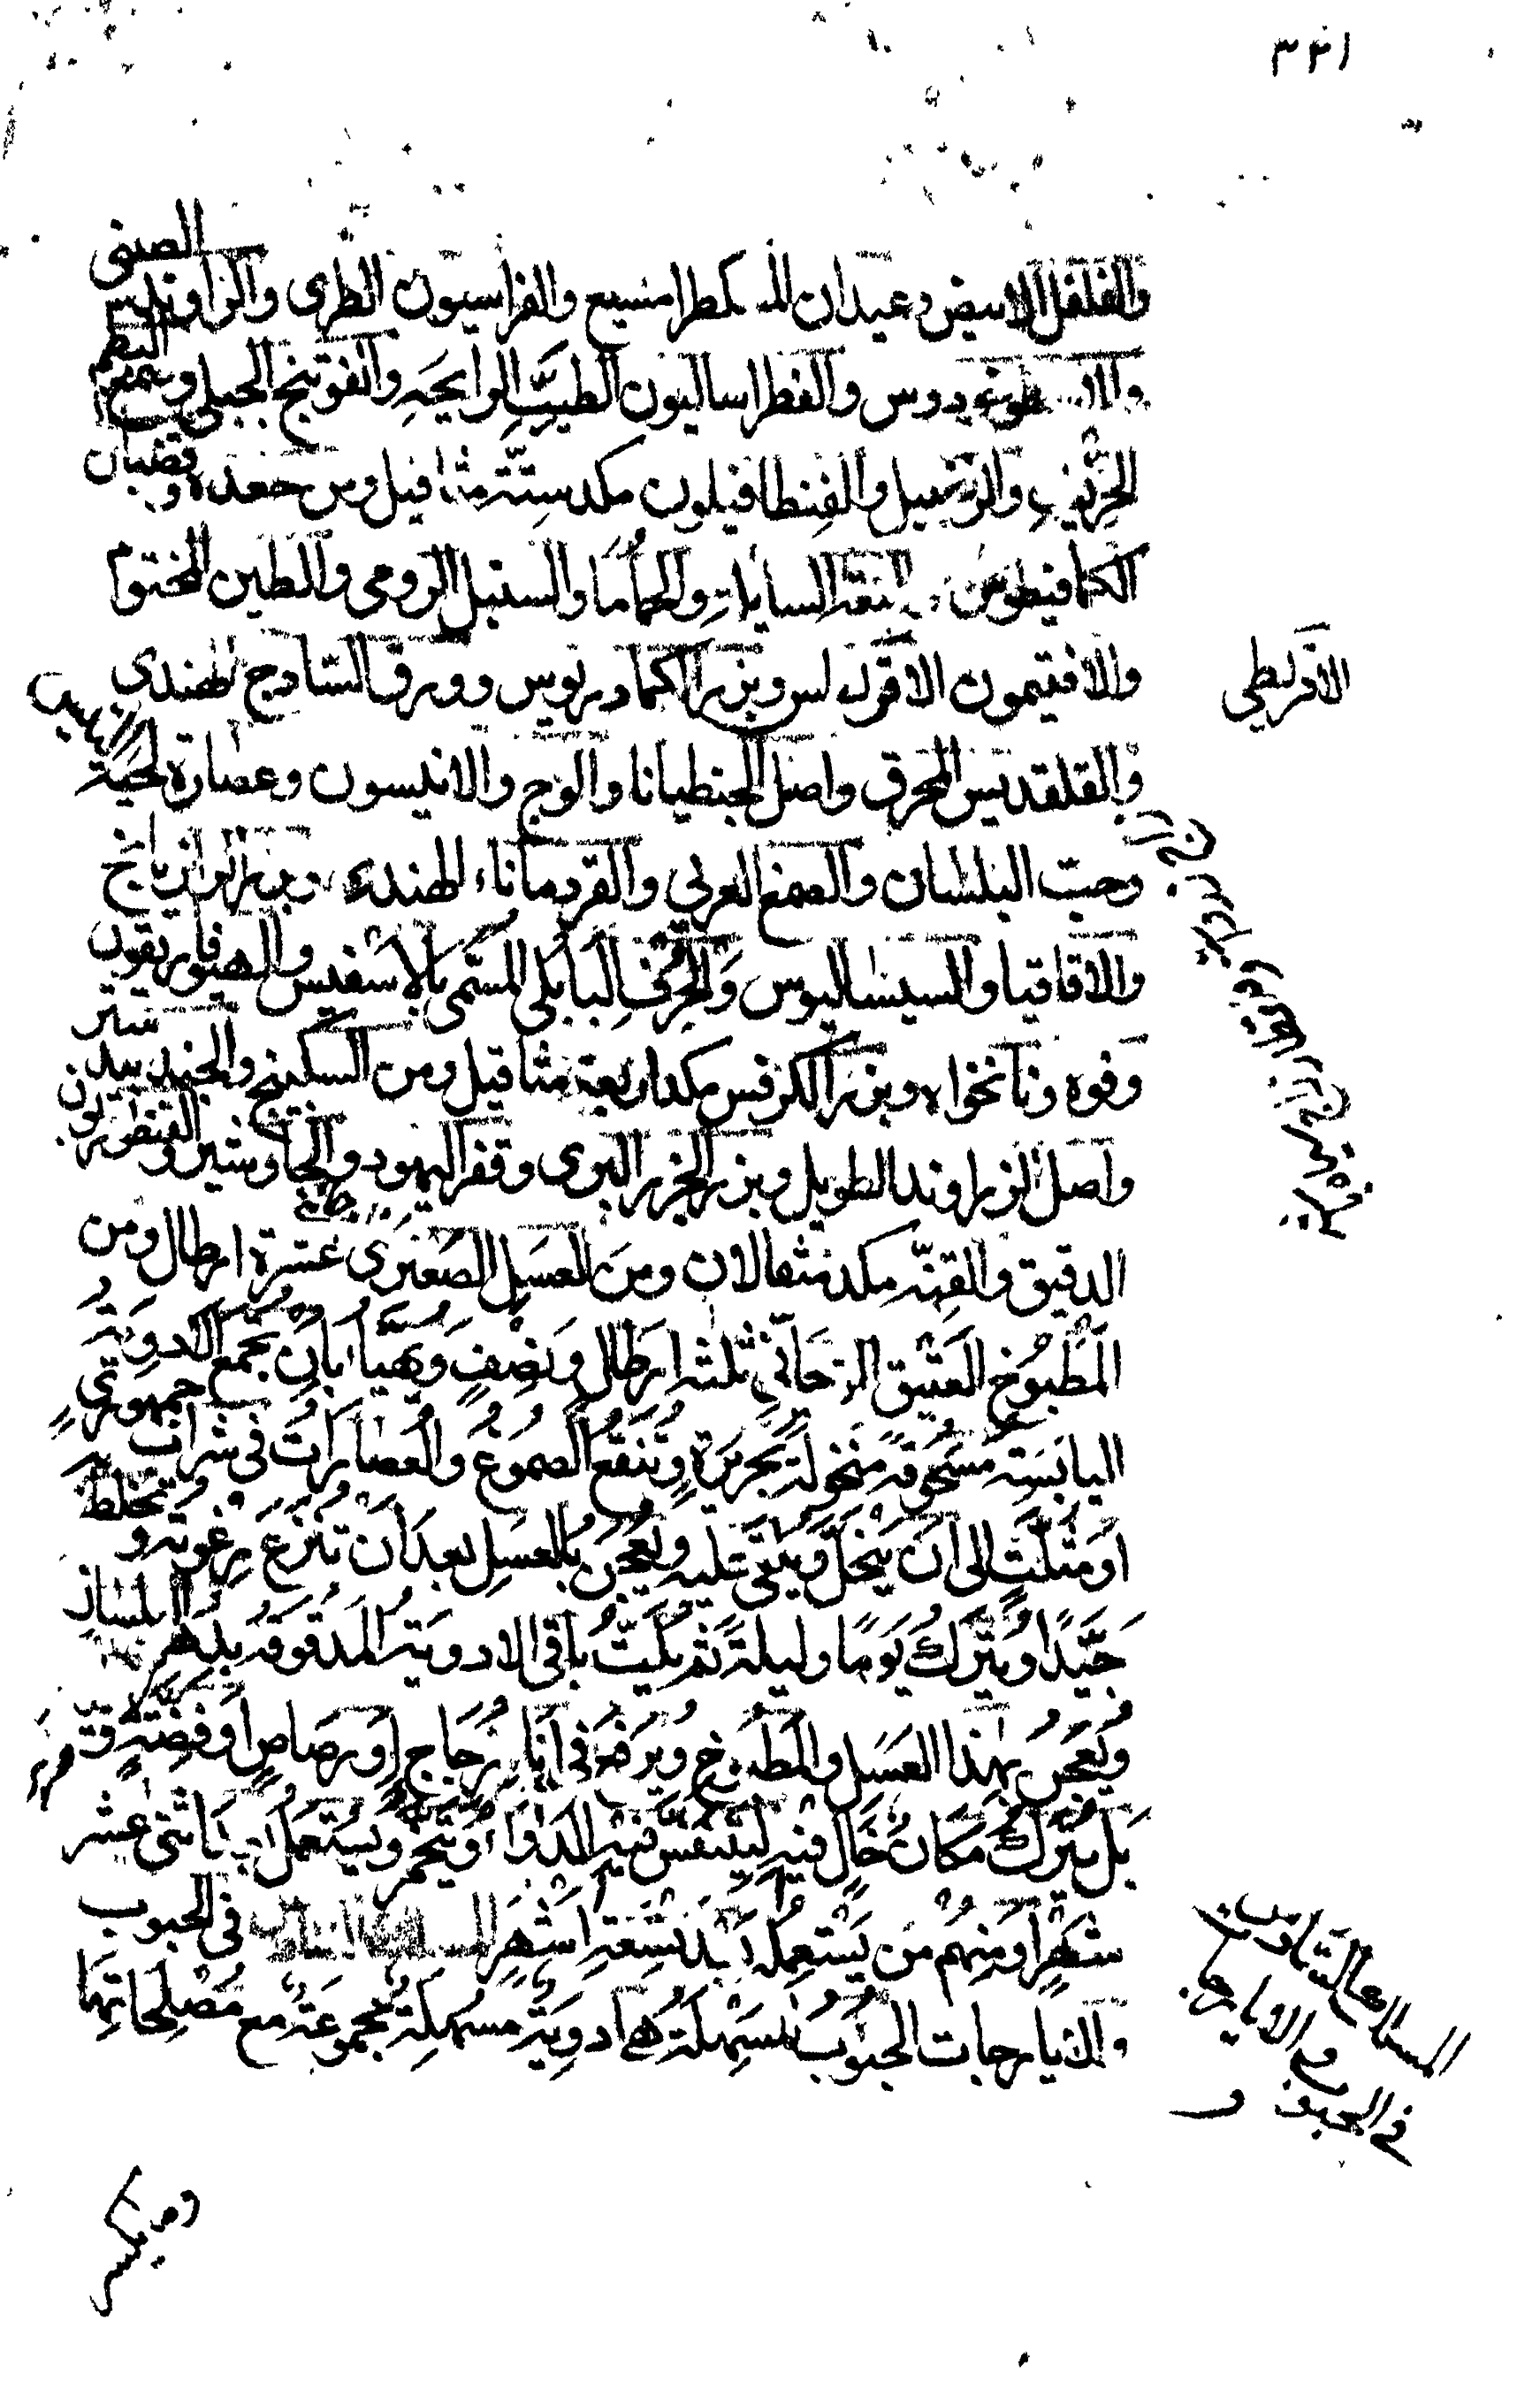 ٣٣١
والفلفل الابيض وعيدان المشكطرامشيع والفراسيون الطري والراوند الصيني
والاسطوخودوس والفطراساليون الطيب الرايحة والفوتنج الجبلي وصمغ البطم
الخرنوب والزنجبيل والفنطافيلون مكد ستة مثاقيل ومن جعدة وقضبان
الكمافيطوس والميعة السايلة والحماما والسنبل الرومي والطين المختوم
والافتيمون الاقر وبزر الكمادريوس وورق الساذج الهندي
الاقريطي
والقلقديس المحرق واصل الجنطيانا والوج والانيسون وعصارة لحية التيس
وحب البلسان والصمغ العربي والقردمانا الهندي وبزر الرازيانج
والاقاقيا والسيساليوس والحرف البابلي المسمى بالاسفيس والهيوفاريقون
وفوه ونانخواه وبزر الكرفس مكد اربعة مثاقيل ومن السكبينج والجندبيدستر
واصل الزراوند الطويل وبزر الجزر البري وقفر اليهود والجاوشير والقنطوريون
الدقيق والقنة مكد مثقالان ومن العسل الصعتري عشرة ارطال ومن
المطبوخ العتيق الريحاني ثلثة ارطال ونصف ويهيأ بان تجمع الادوية
اليابسة مسحوقة منخولة بحريرة وتنقع الصموغ والعصارات في شراب جمهوري
او مثلث الى ان ينحل ويلقى عليه ويعجن بالعسل بعد ان تنزع رغوته وتخلط
جيدا ويترك يوما وليلة ثم يلت باقي الادوية المدقوقة بدهن البلسان
ويعجن بهذا العسل والمطبوخ ويرفع في انا زجاج او رصاص او فضة
بل يترك مكان خال فيه ليتنفس فيه الدوا ويتخمر ويستعمل اثنى عشر
شهرا ومنهم من يستعمله بعد تسعة اشهر في الحبوب
والايارجات الحبوب المسهلة هي ادوية مسهلة مجموعة مع مصلحاتها
في الحبوب و
والايارجات